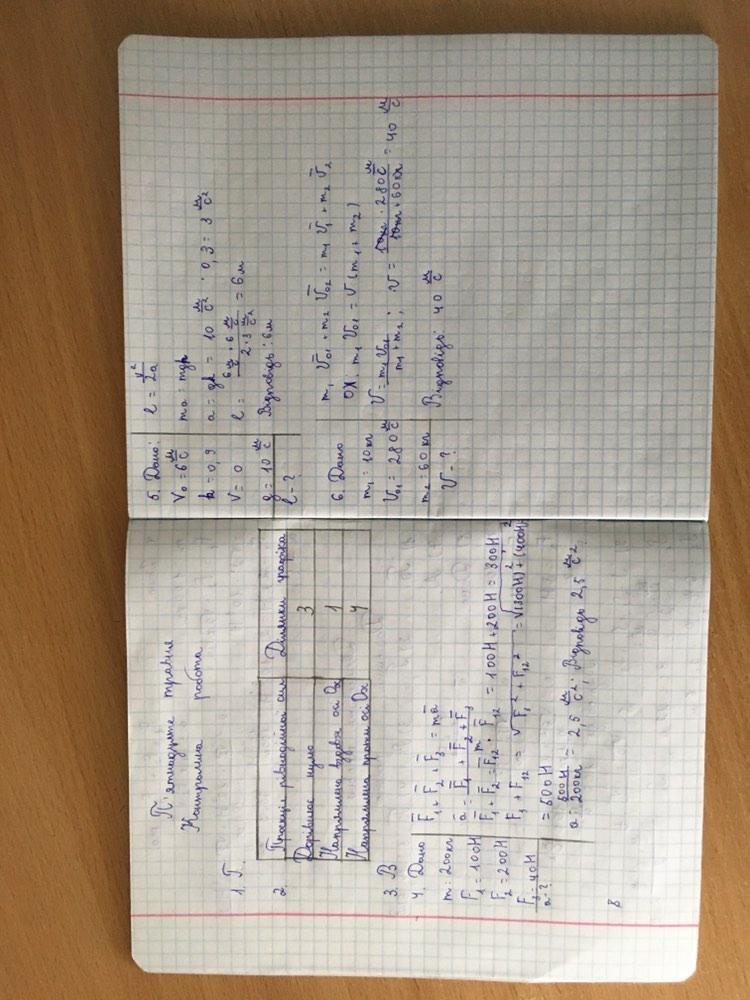 П'ятнадцяте травня
Контрольна робота
1. Г.
2.
Проєкція рівнодійної сил Ділянки графіка
Дорівнює нулю 3
Напрямлена вздовж осі Ox 1
Напрямлена проти осі Ox 4
3. В
4. Дано
m = 200кг
F₁ = 100Н
F₂ = 200Н
F₃ = 40Н
a = ?
F̅₁ + F̅₂ + F̅₃ = ma̅
a̅ = (F̅₁ + F̅₂ + F̅₃)/m
F̅₁ + F̅₂ = F̅₁₂ · F̅₁₂ = 100Н + 200Н = 300Н
F₁ + F₁₂ = √F₁² + F₁₂² = √(300Н)² + (400Н)²
= 500Н
a = 500Н/200кг = 2,5 м/с². Відповідь 2,5 м/с²
в
5. Дано:
V₀ = 6 м/с
k = 0,9
V = 0
g = 10 м/с
l - ?
l = v²/2a
ma = mgk
a = gk = 10 м/с² · 0,3 = 3 м/с²
l = (6 м/с · 6 м/с)/(2 · 3 м/с²) = 6м
Відповідь: 6м
6. Дано
m₁ = 10кг
V₀₁ = 280 м/с
m₂ = 60кг
V - ?
m₁ V̅₀₁ + m₂ V̅₀₂ = m₁ V̅₁ + m₂ V̅₂
OX: m₁ V₀₁ = V (m₁ + m₂)
V = m₁V₀₁/(m₁ + m₂) ; V = (10кг · 280 м/с)/(10кг + 60кг) = 40 м/с
Відповідь: 40 м/с